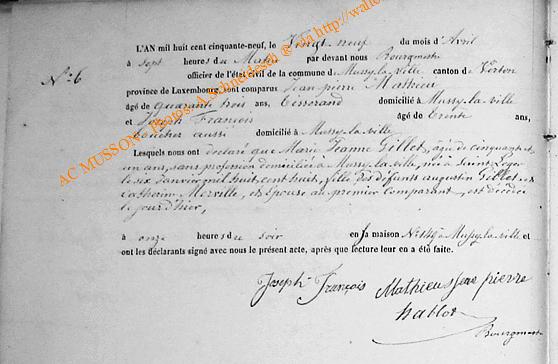 N° 6
L'AN mil huit cent cinquante-neuf, le Vingt neuf du mois d'Avril
à sept heures du Matin par devant nous Bourgmestre
officier de l'état civil de la commune de Mussy-la-ville canton de Virton
province de Luxembourg, sont comparus Jean pierre Mathieu
âgé de quarante trois ans, Tisserand domicilié à Mussy-la-ville
et Joseph François âgé de trente ans,
aussi domicilié à Mussy-la-ville
Lesquels nous ont déclaré que Marie Jeanne Gillet, âgée de cinquante et
un ans, sans profession domiciliée à Mussy-la-ville, née à Saint Léger
le six Janvier mil huit cent huit, fille des défunts augustin Gillet et
Catherine Merville, et Epouse au premier Comparant, est décédée
le jour d'hier,
à onze heures du soir en sa maison à Mussy-la-ville et
ont les déclarants signé avec nous le présent acte, après que lecture leur en a été faite.
Joseph François Mathieu Jean pierre
Hablot
Bourgmestre
AC MUSSON, Photos: A.Schneider